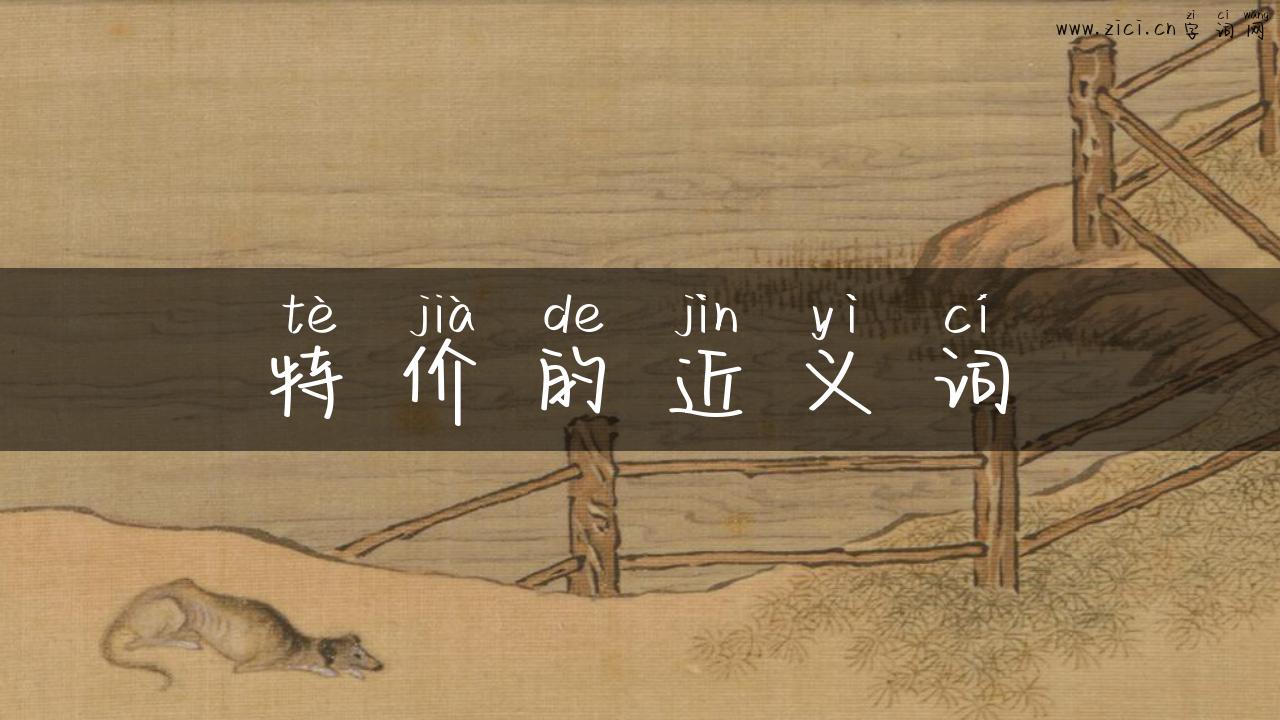 zì cí wǎng
www.zici.cn 字词网
tè jià de jìn yì cí
特价的近义词